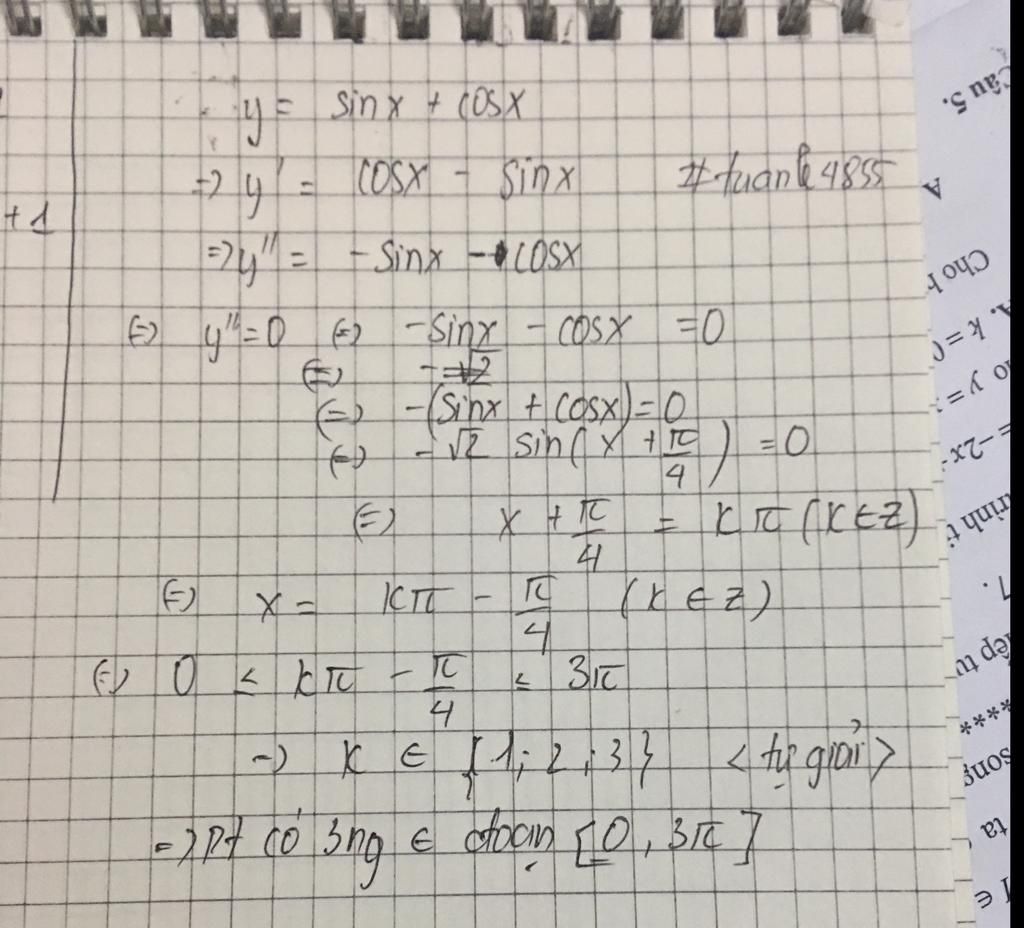 y = sinx + cosx
=> y' = cosx - sinx #tuanle4855
+1
=> y'' = -sinx - cosx
(=) y''=0 (=) -sinx - cosx = 0
(=) -√2
(=) -(sinx + cosx)=0
(=) -√2 sin(x + π/4) = 0
(=) x + π/4 = kπ (k∈Z)
(=) x = kπ - π/4 (k ∈ Z)
(=) 0 ≤ kπ - π/4 ≤ 3π
-> k ∈ {1; 2; 3} <tự giải>
=> pt có 3ng ∈ đoạn [0, 3π]
Câu 5.
A
Cho h
A. k = 0
= -2x
trình t
7.
iếp tu
*****
song
ta